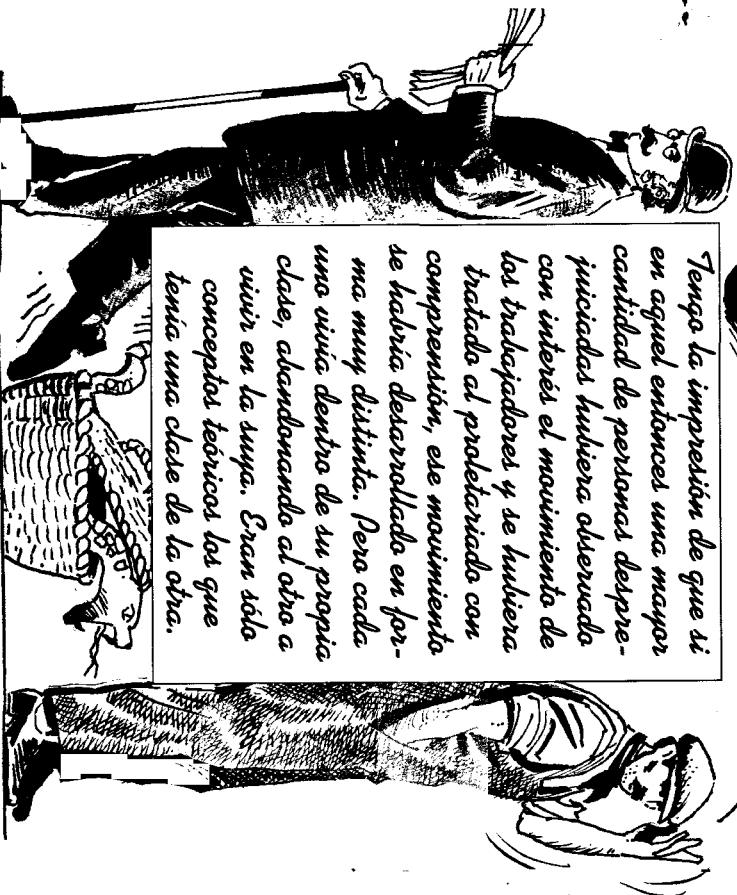 Tengo la impresión de que si
en aquel entonces una mayor
cantidad de personas despre-
juiciadas hubiera observado
con interés el movimiento de
los trabajadores y se hubiera
tratado al proletariado con
comprensión, ese movimiento
se habría desarrollado en for-
ma muy distinta. Pero cada
uno vivía dentro de su propia
clase, abandonando al otro a
vivir en la suya. Eran sólo
conceptos teóricos los que
tenía una clase de la otra.